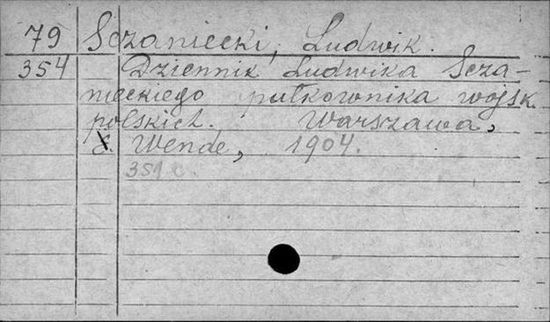 79 Sczaniecki, Ludwik.
354 Dziennik Ludwika Scza-
nieckiego pułkownika wojsk
polskich. Warszawa,
E. Wende, 1904.
351 c.